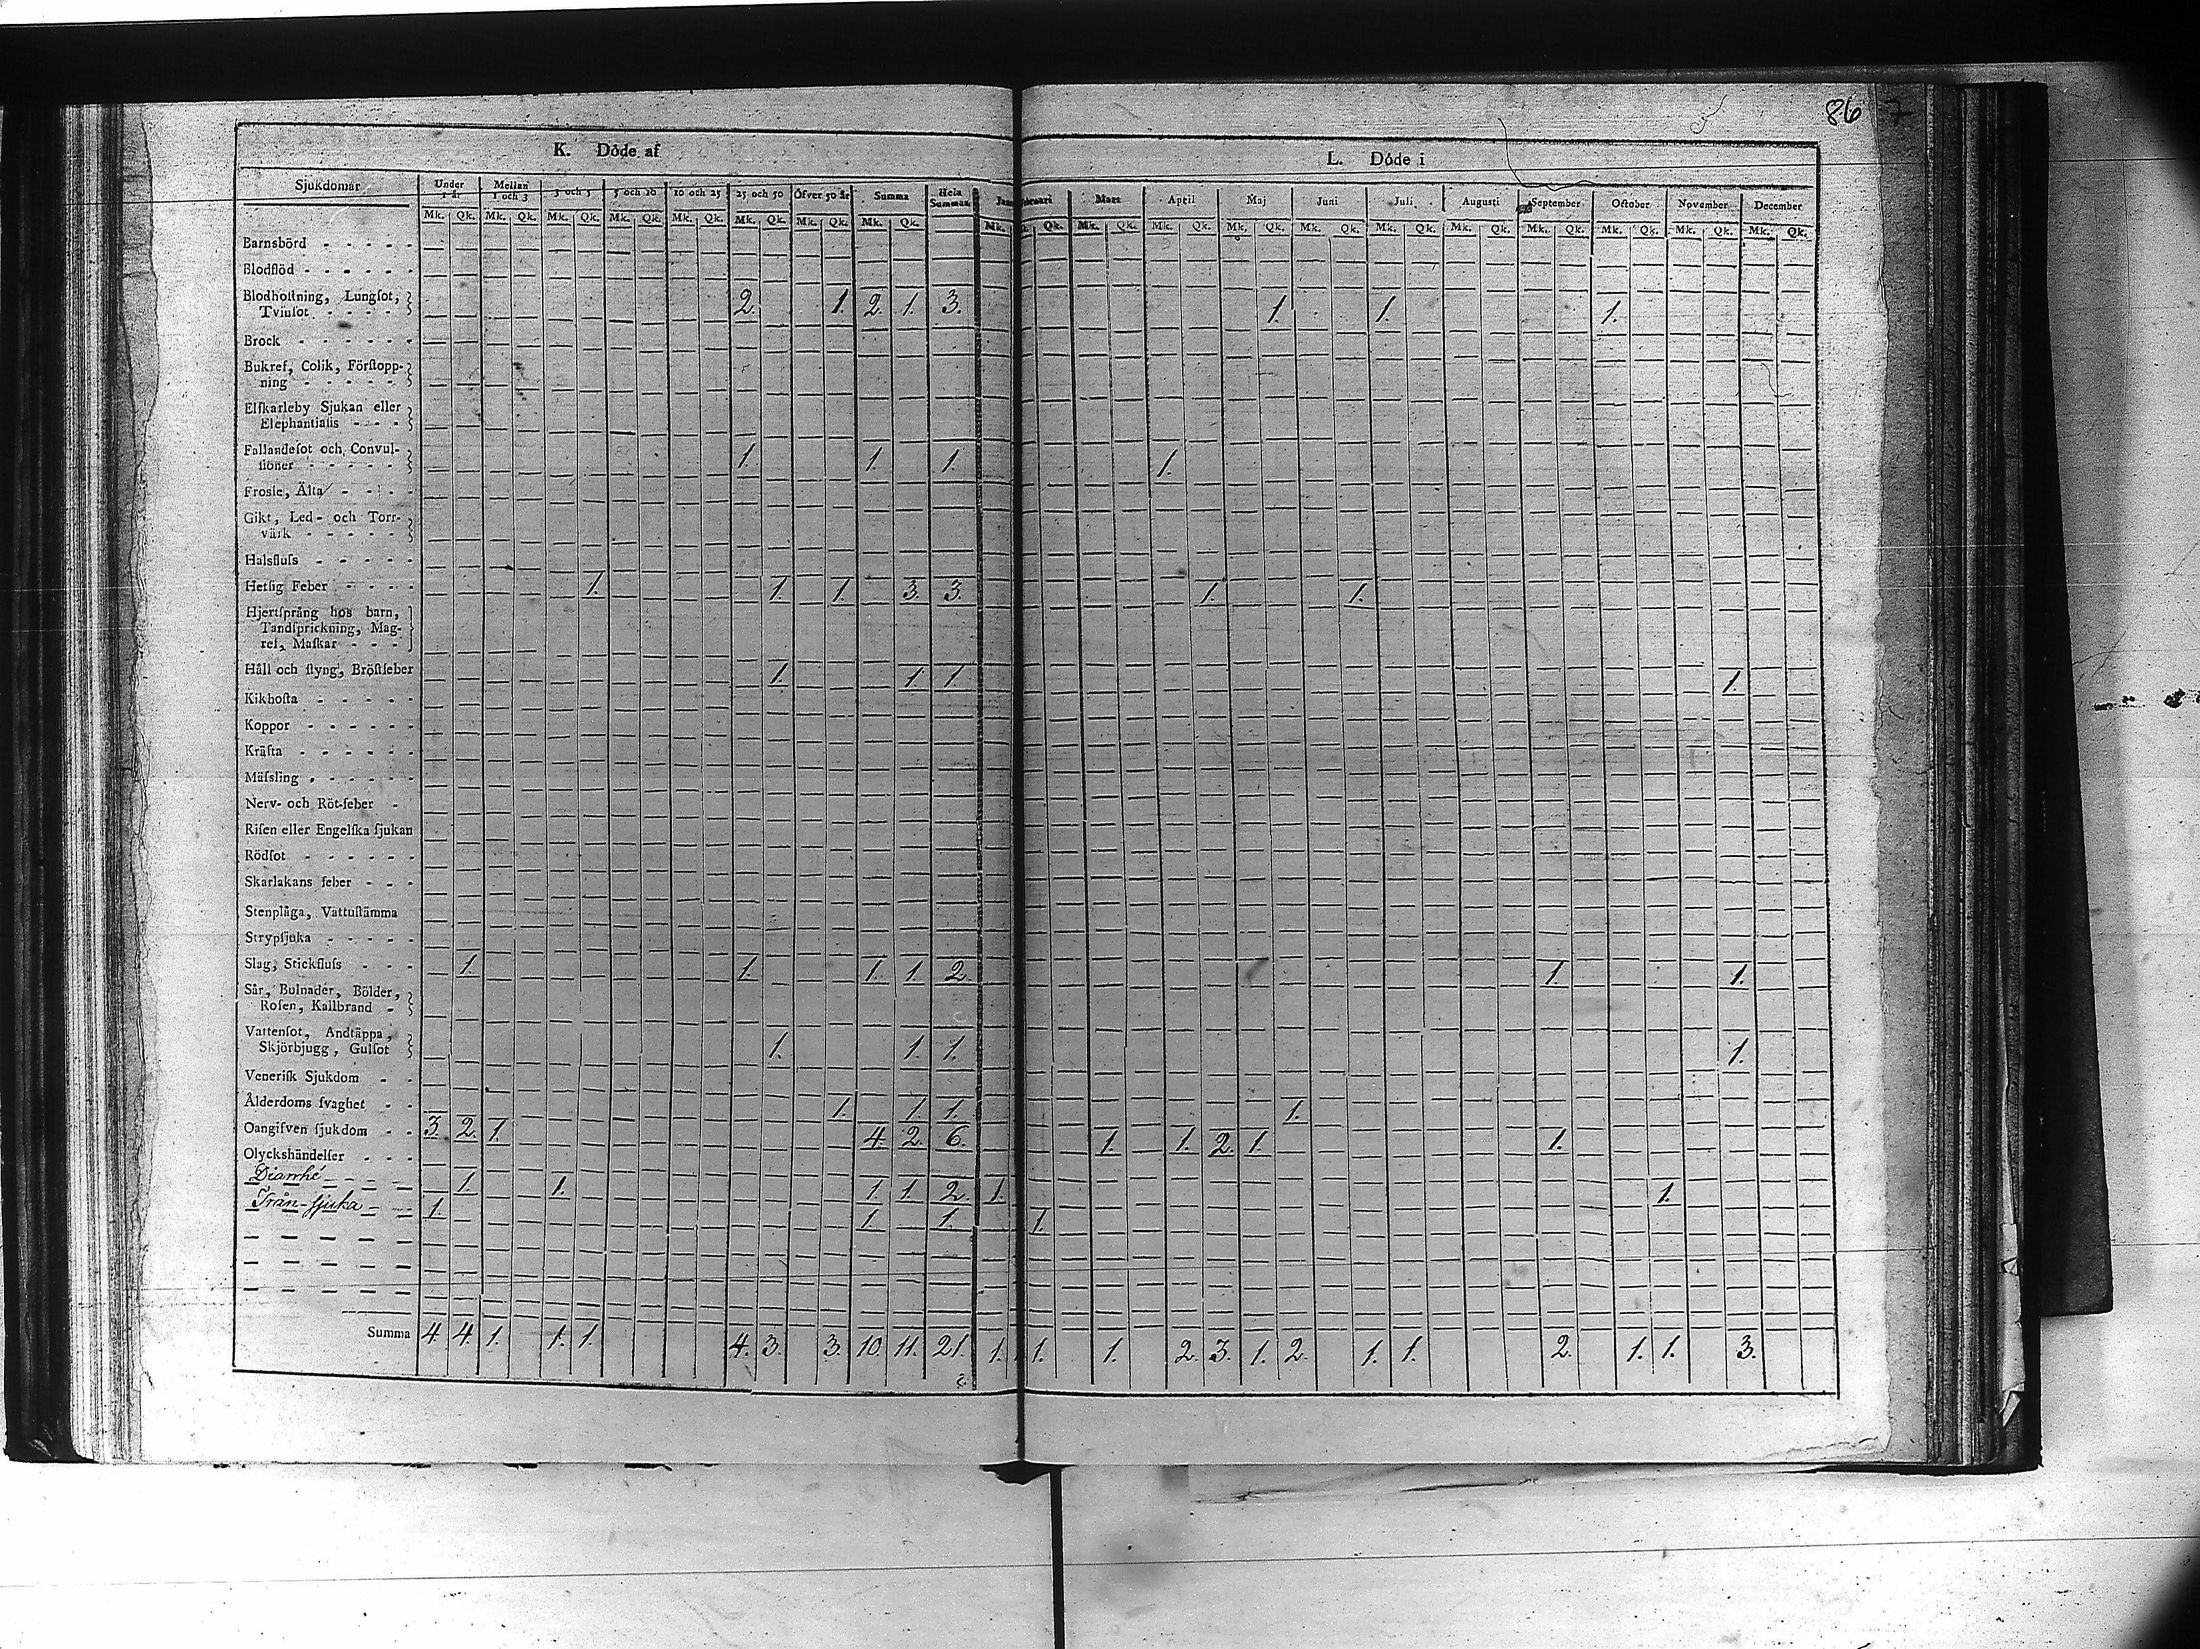 86
K. Döde af
L. Döde i
Sjukdomar Under 1 år Mellan 1 och 3 3 och 5 5 och 10 10 och 25 25 och 50 Öfver 50 år Summa Hela Summan Mars April Maj Juni Juli Augusti September October November December
Mk. Qk. Mk. Qk. Mk. Qk. Mk. Qk. Mk. Qk. Mk. Qk. Mk. Qk. Mk. Qk. Mk. Qk. Mk. Qk. Mk. Qk. Mk. Qk. Mk. Qk. Mk. Qk. Mk. Qk. Mk. Qk. Mk. Qk. Mk. Qk. Mk. Qk.
Barnsbörd - - - - -
Blodflöd - - - - - -
Blodhostning, Lungſot,
Tvinſot - - - - 2. 1. 2. 1. 3. 1. 1. 1.
Brock - - - - - -
Bukref, Colik, Förſtopp-
ning - - - - -
Elſkarleby Sjukan eller
Elephantiaſis - - - -
Fallandeſot och Convul-
ſioner - - - - - 1. 1. 1. 1.
Froſſe, Älta - - - -
Gikt, Led- och Torr-
värk - - - - -
Halsfluſs - - - - -
Hetſig Feber - - - - 1. 1. 1. 3. 3. 1. 1.
Hjertſprång hos barn,
Tandſprickning, Mag-
ref, Maſkar - - -
Håll och ſtyng, Bröſtfeber 1. 1. 1. 1.
Kikhoſta - - - - -
Koppor - - - - - -
Kräfta - - - - - -
Mäſsling - - - - - -
Nerv- och Röt-feber -
Riſen eller Engelſka ſjukan
Rödſot - - - - - -
Skarlakans feber - - -
Stenplåga, Vattuſtämma
Strypſjuka - - - - -
Slag, Stickfluſs - - - 1. 1. 1. 1. 2. 1. 1.
Sår, Bulnader, Bölder,
Roſen, Kallbrand -
Vattenſot, Andtäppa,
Skjörbjugg, Gulſot 1. 1. 1. 1.
Veneriſk Sjukdom - -
Ålderdoms ſvaghet - - 1. 1. 1. 1.
Oangifven ſjukdom - - 3. 2. 1. 4. 2. 6. 1. 1. 2. 1. 1.
Olyckshändelſer - - -
Diarrhé 1. 1. 1. 1. 2. 1. 1.
Trån-sjuka 1. 1. 1. 1.
Summa 4. 4. 1. 1. 1. 4. 3. 3. 10. 11. 21. 1. 1. 1. 2. 3. 1. 2. 1. 1. 2. 1. 1. 3.